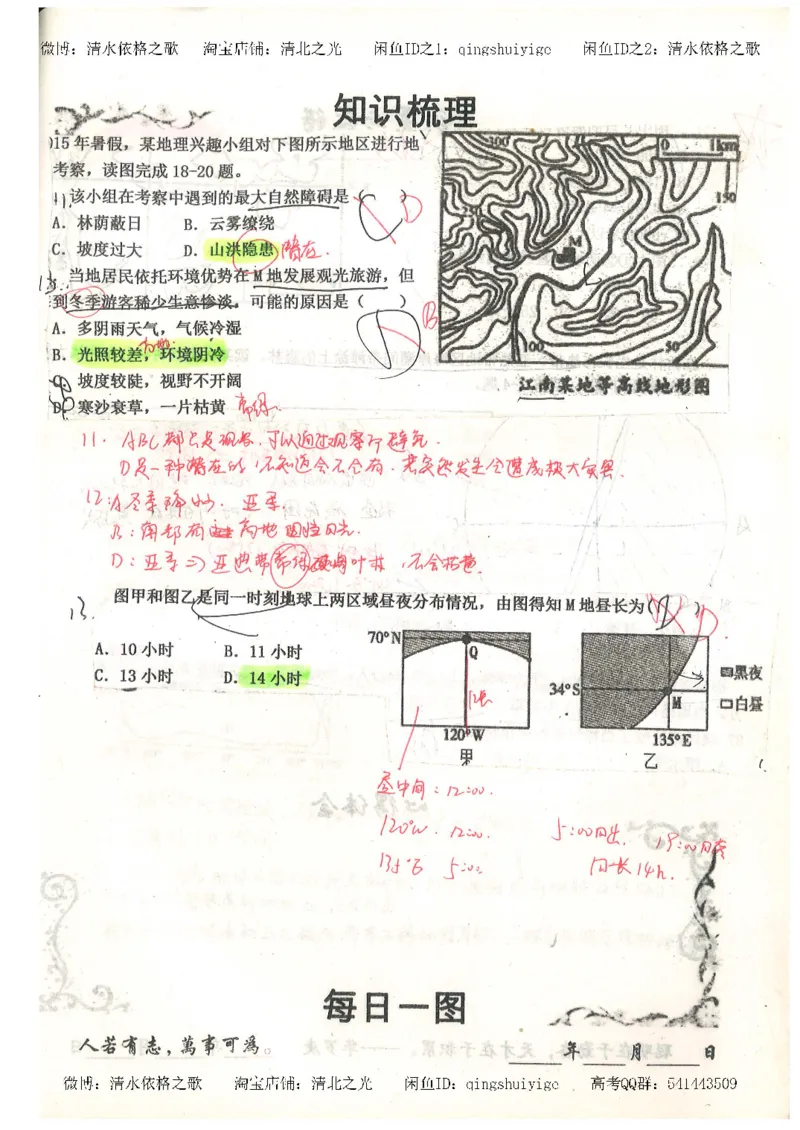 微博：清水依格之歌 淘宝店铺：清北之光 闲鱼ID之1：qingshuiyige 闲鱼ID之2：清水依格之歌
知识梳理
015年暑假，某地理兴趣小组对下图所示地区进行地
考察，读图完成18-20题。
11. 该小组在考察中遇到的最大自然障碍是（C） D
A. 林荫蔽日 B. 云雾缭绕
C. 坡度过大 D. 山洪隐患 潜在.
12. 当地居民依托环境优势在M地发展观光旅游，但
到冬季游客稀少生意惨淡，可能的原因是（D） B
A. 多阴雨天气，气候冷湿
B. 光照较差，环境阴冷
C. 坡度较陡，视野不开阔
D. 寒沙衰草，一片枯黄 常绿.
300
0 1km
150
250
M
100
50
江南某地等高线地形图
11. ABC都只是现象，可以通过观察行避免.
D是一种潜在的，不知道会不会有，若突然发生会造成极大灾害.
12: A冬季降水少.
B: 南部有高地阻挡日光.
不会枯黄.
13. 图甲和图乙是同一时刻地球上两区域昼夜分布情况，由图得知M地昼长为（ ） D
A. 10小时 B. 11小时
C. 13小时 D. 14小时
70°N
Q
120°W
甲
34°S
M
135°E
乙
黑夜
白昼
昼中间：12:00.
120°W. 12:00. 5:00日出. 19:00日落
135°E 5:00 日长14h.
每日一图
人若有志，萬事可為。
年 月 日
微博：清水依格之歌 淘宝店铺：清北之光 闲鱼ID：qingshuiyige 高考QQ群：541443509